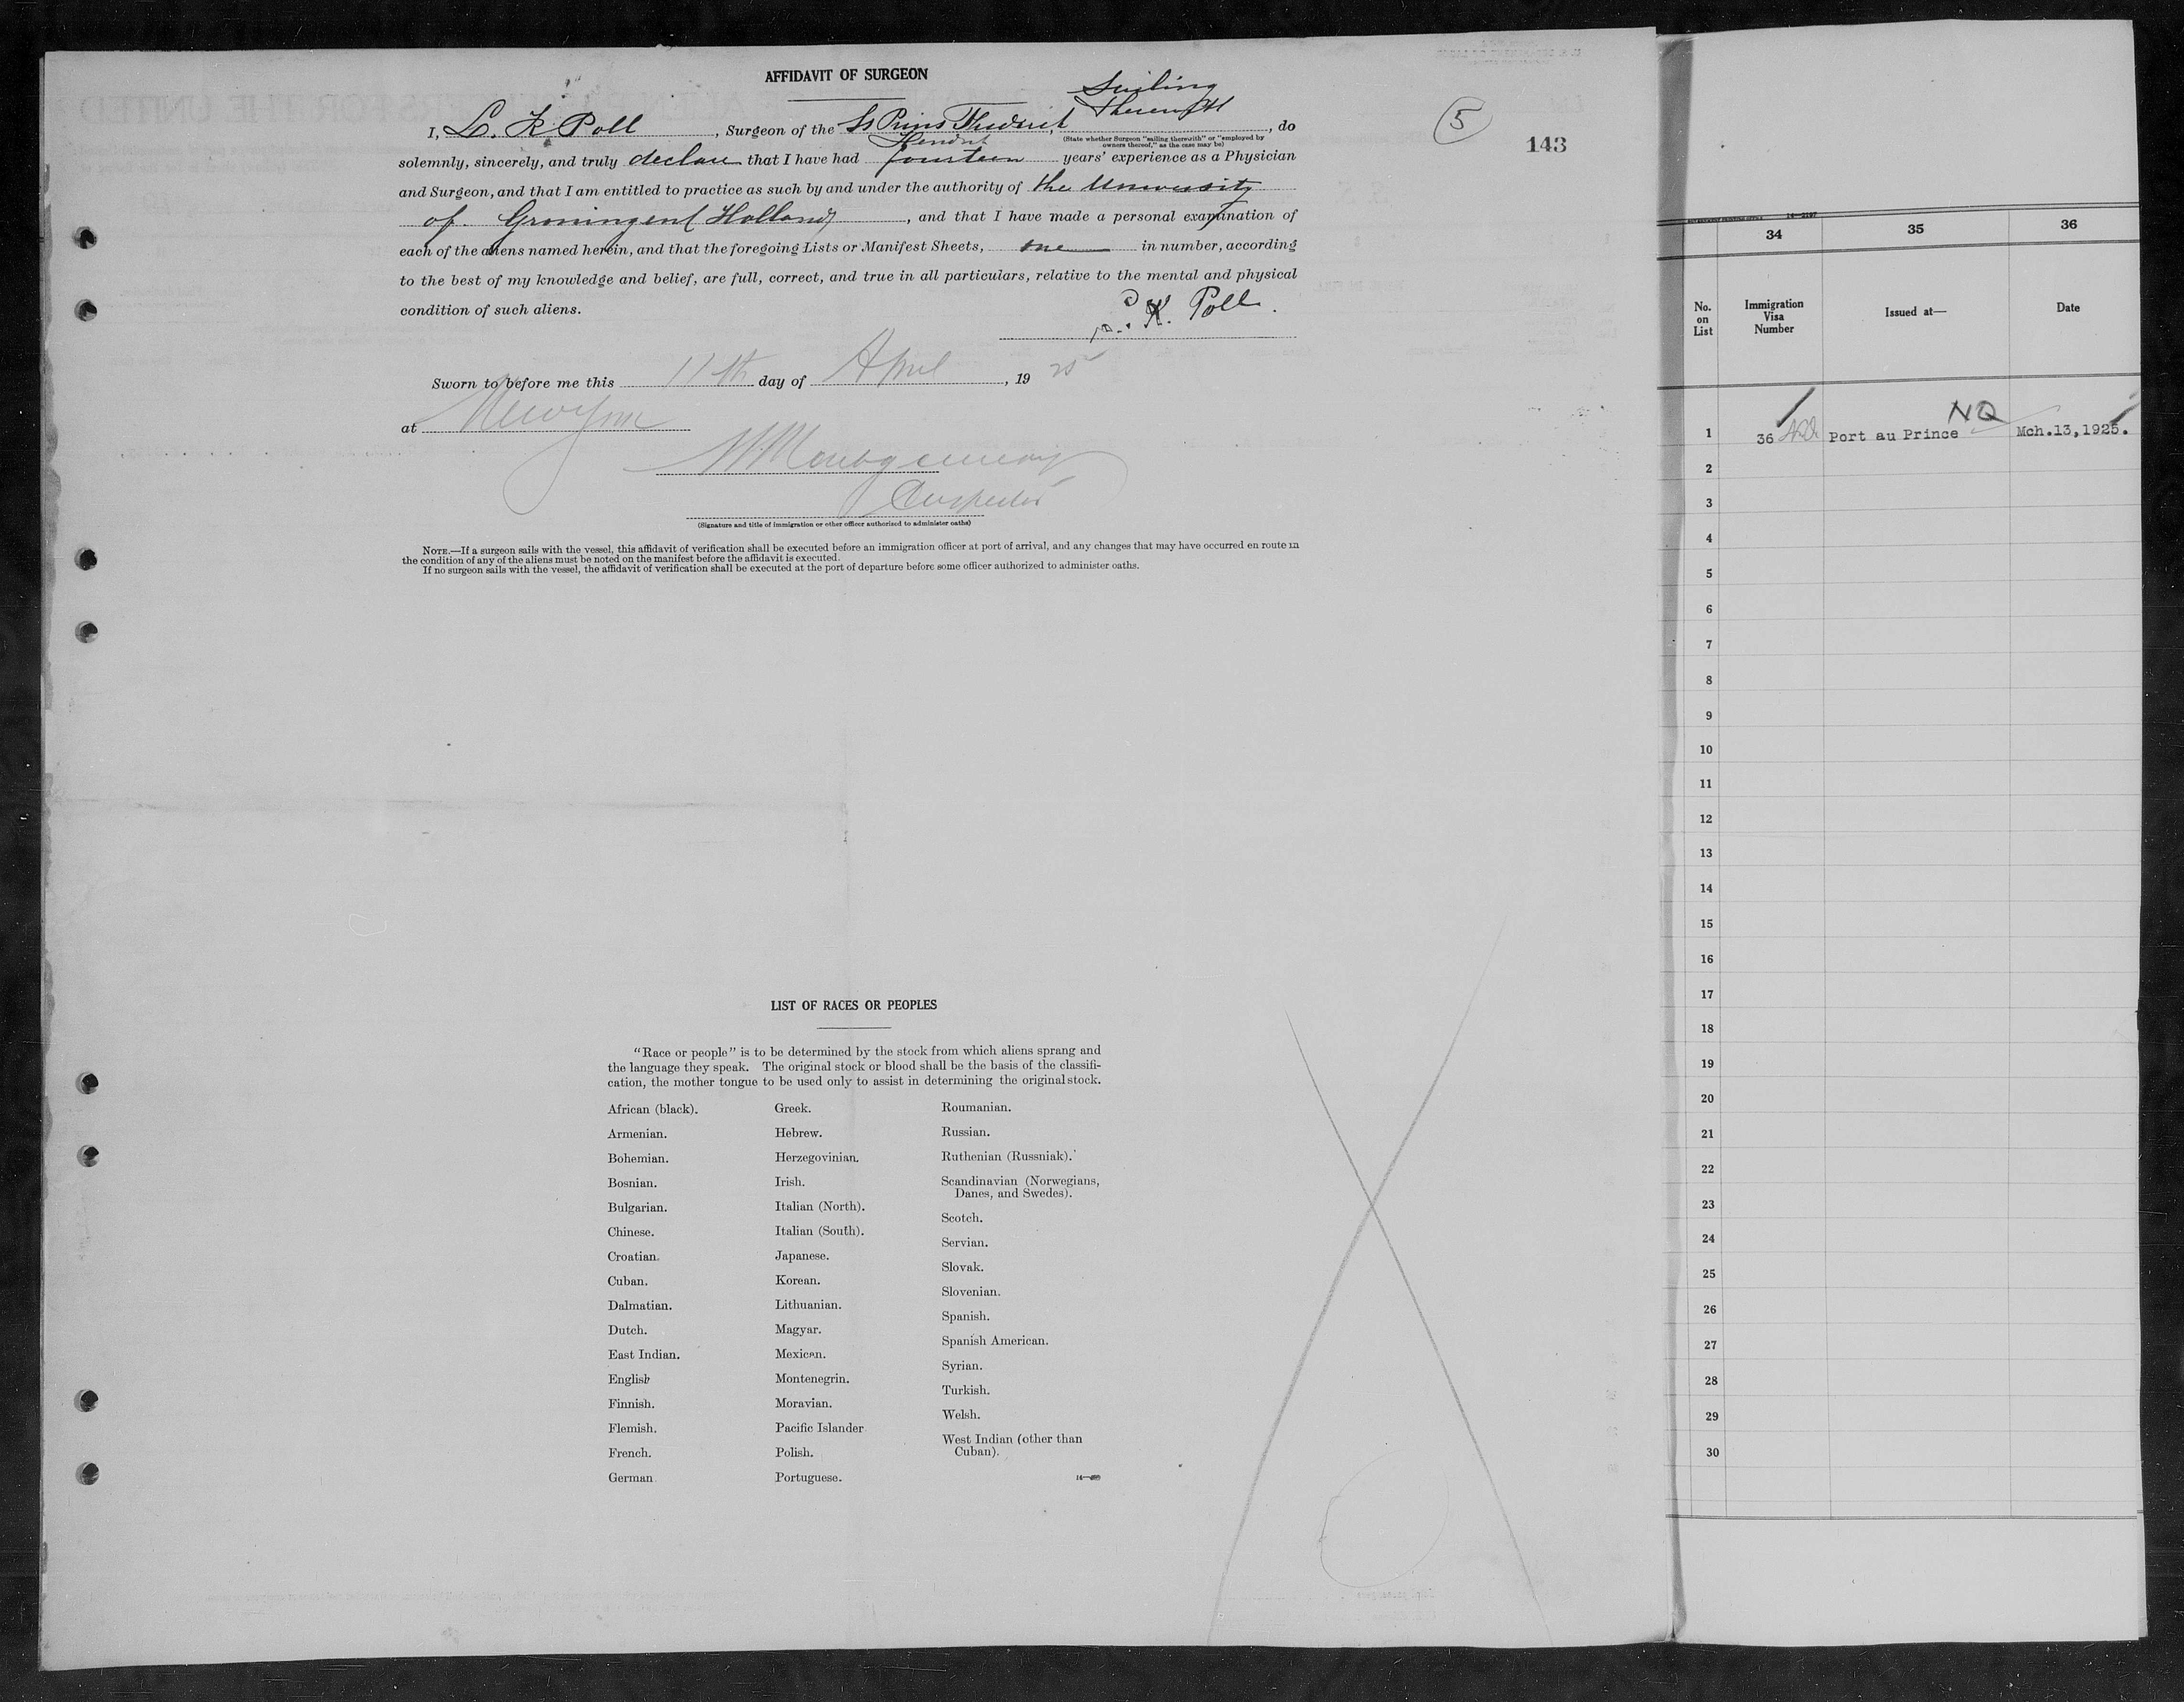 AFFIDAVIT OF SURGEON
Sailing
therewith
I, L. K Poll, Surgeon of the Ss Prins Frederik, do
Hendrik
(State whether Surgeon "sailing therewith" or "employed by
owners thereof," as the case may be)
solemnly, sincerely, and truly declare that I have had fourteen years' experience as a Physician
and Surgeon, and that I am entitled to practice as such by and under the authority of the University
of Groningen (Holland), and that I have made a personal examination of
each of the aliens named herein, and that the foregoing Lists or Manifest Sheets, one in number, according
to the best of my knowledge and belief, are full, correct, and true in all particulars, relative to the mental and physical
condition of such aliens.
K. Poll.
Sworn to before me this 11th day of April, 1925
at New York
Montgomery
Inspector
(Signature and title of immigration or other officer authorized to administer oaths)
NOTE.—If a surgeon sails with the vessel, this affidavit of verification shall be executed before an immigration officer at port of arrival, and any changes that may have occurred en route in
the condition of any of the aliens must be noted on the manifest before the affidavit is executed.
If no surgeon sails with the vessel, the affidavit of verification shall be executed at the port of departure before some officer authorized to administer oaths.
5
143
LIST OF RACES OR PEOPLES
"Race or people" is to be determined by the stock from which aliens sprang and
the language they speak. The original stock or blood shall be the basis of the classifi-
cation, the mother tongue to be used only to assist in determining the original stock.
African (black).
Armenian.
Bohemian.
Bosnian.
Bulgarian.
Chinese.
Croatian.
Cuban.
Dalmatian.
Dutch.
East Indian.
English
Finnish.
Flemish.
French.
German
Greek.
Hebrew.
Herzegovinian.
Irish.
Italian (North).
Italian (South).
Japanese.
Korean.
Lithuanian.
Magyar.
Mexican.
Montenegrin.
Moravian.
Pacific Islander
Polish.
Portuguese.
Roumanian.
Russian.
Ruthenian (Russniak).
Scandinavian (Norwegians,
Danes, and Swedes).
Scotch.
Servian.
Slovak.
Slovenian.
Spanish.
Spanish American.
Syrian.
Turkish.
Welsh.
West Indian (other than
Cuban).
34 35 36
No.
on
List
Immigration
Visa
Number
Issued at—
Date
NQ
1 36 Port au Prince Mch.13,1925.
2
3
4
5
6
7
8
9
10
11
12
13
14
15
16
17
18
19
20
21
22
23
24
25
26
27
28
29
30